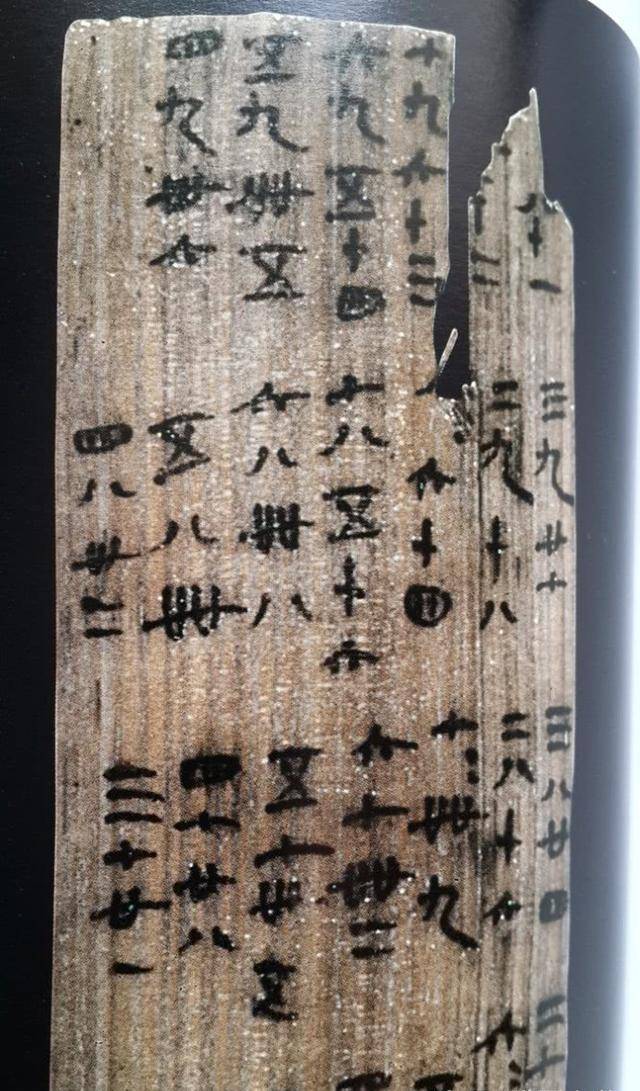 十一
二
七九六十三
六九五十四
五九卌五
四九卅六
三九廿七
二九十八
六十四
七八五十六
六八卌八
五八卌
四八卅二
三八廿四
二八十六
七七卌九
六七卌二
五七卅五
四七廿八
三七廿一
二七
六